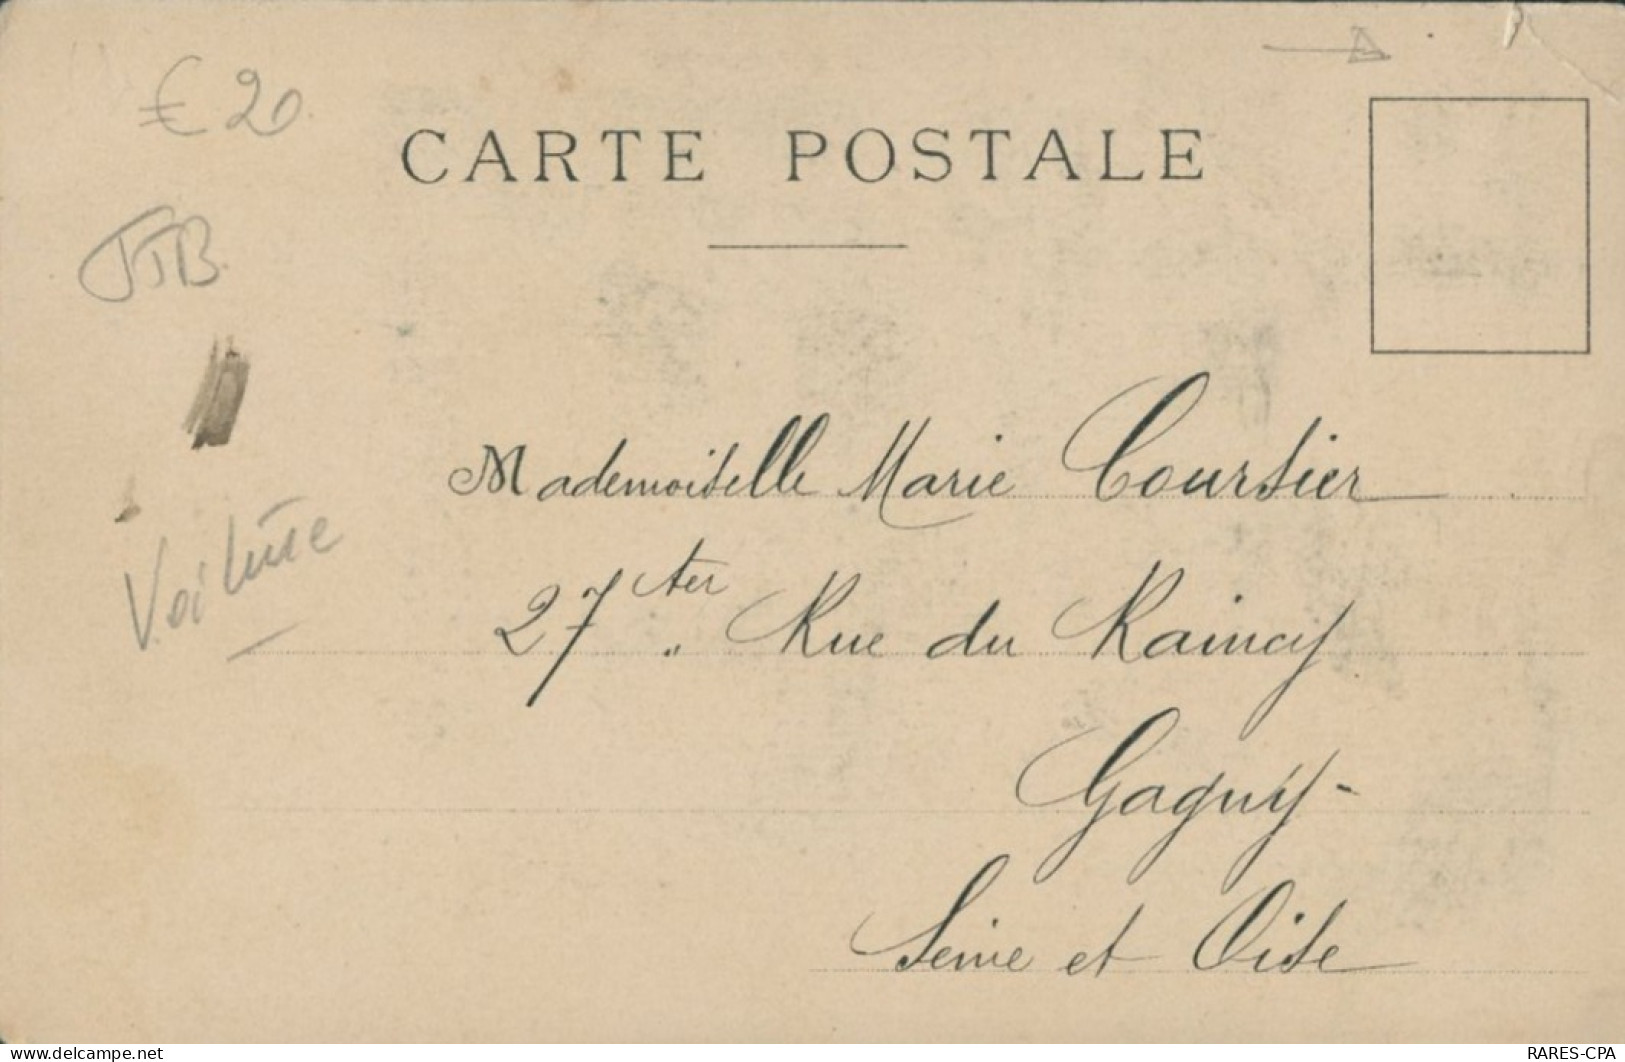 € 20
CARTE POSTALE
TTB
Voiture
Mademoiselle Marie Coursier
27 ter " Rue du Raincy
Gagny -
Seine et Oise
www.delcampe.net
RARES-CPA